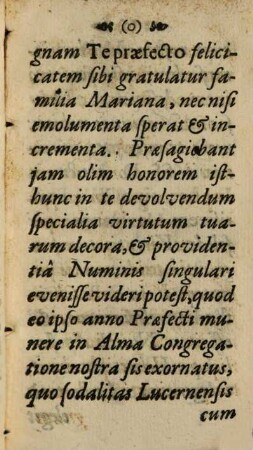 (o)
gnam Te præfecto felici-
catem sibi gratulatur fa-
milia Mariana, nec nisi
emolumenta sperat & in-
crementa.. Præsagiebant
jam olim honorem ist-
hunc in te devolvendum
specialia virtutum tua-
rum decora, & providen-
tiâ Numinis singulari
evenisse videri potest, quod
eo ipso anno Præfecti mu-
nere in Alma Congrega-
tione nostra sis exornatus,
quo sodalitas Lucernensis
cum